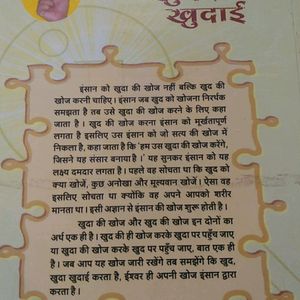 खुदाई
इंसान को खुदा की खोज नहीं बल्कि खुद की
खोज करनी चाहिए। इंसान जब खुद को खोजना निरर्थक
समझता है तब उसे खुदा की खोज करने के लिए कहा
जाता है। खुद की खोज करना इंसान को मूर्खतापूर्ण
लगता है इसलिए उस इंसान को जो सत्य की खोज में
निकला है, कहा जाता है कि 'हम उस खुदा की खोज करेंगे,
जिसने यह संसार बनाया है।' यह सुनकर इंसान को यह
लक्ष्य दमदार लगता है। पहले वह सोचता था कि खुद को
क्या खोजें, कुछ अनोखा और मूल्यवान खोजें। ऐसा वह
इसलिए सोचता था क्योंकि वह अपने आपको शरीर
मानता था। इसी अज्ञान से इंसान की खोज शुरू होती है।
खुदा की खोज और खुद की खोज इन दोनों का
अर्थ एक ही है। खुद की ही खोज करके खुदा पर पहुँच जाएँ
या खुदा की खोज करके खुद पर पहुँच जाएँ, बात एक ही
है। जब आप यह खोज जारी रखेंगे तब समझेंगे कि खुद,
खुदा खुदाई करता है, ईश्वर ही अपनी खोज इंसान द्वारा
करता है।